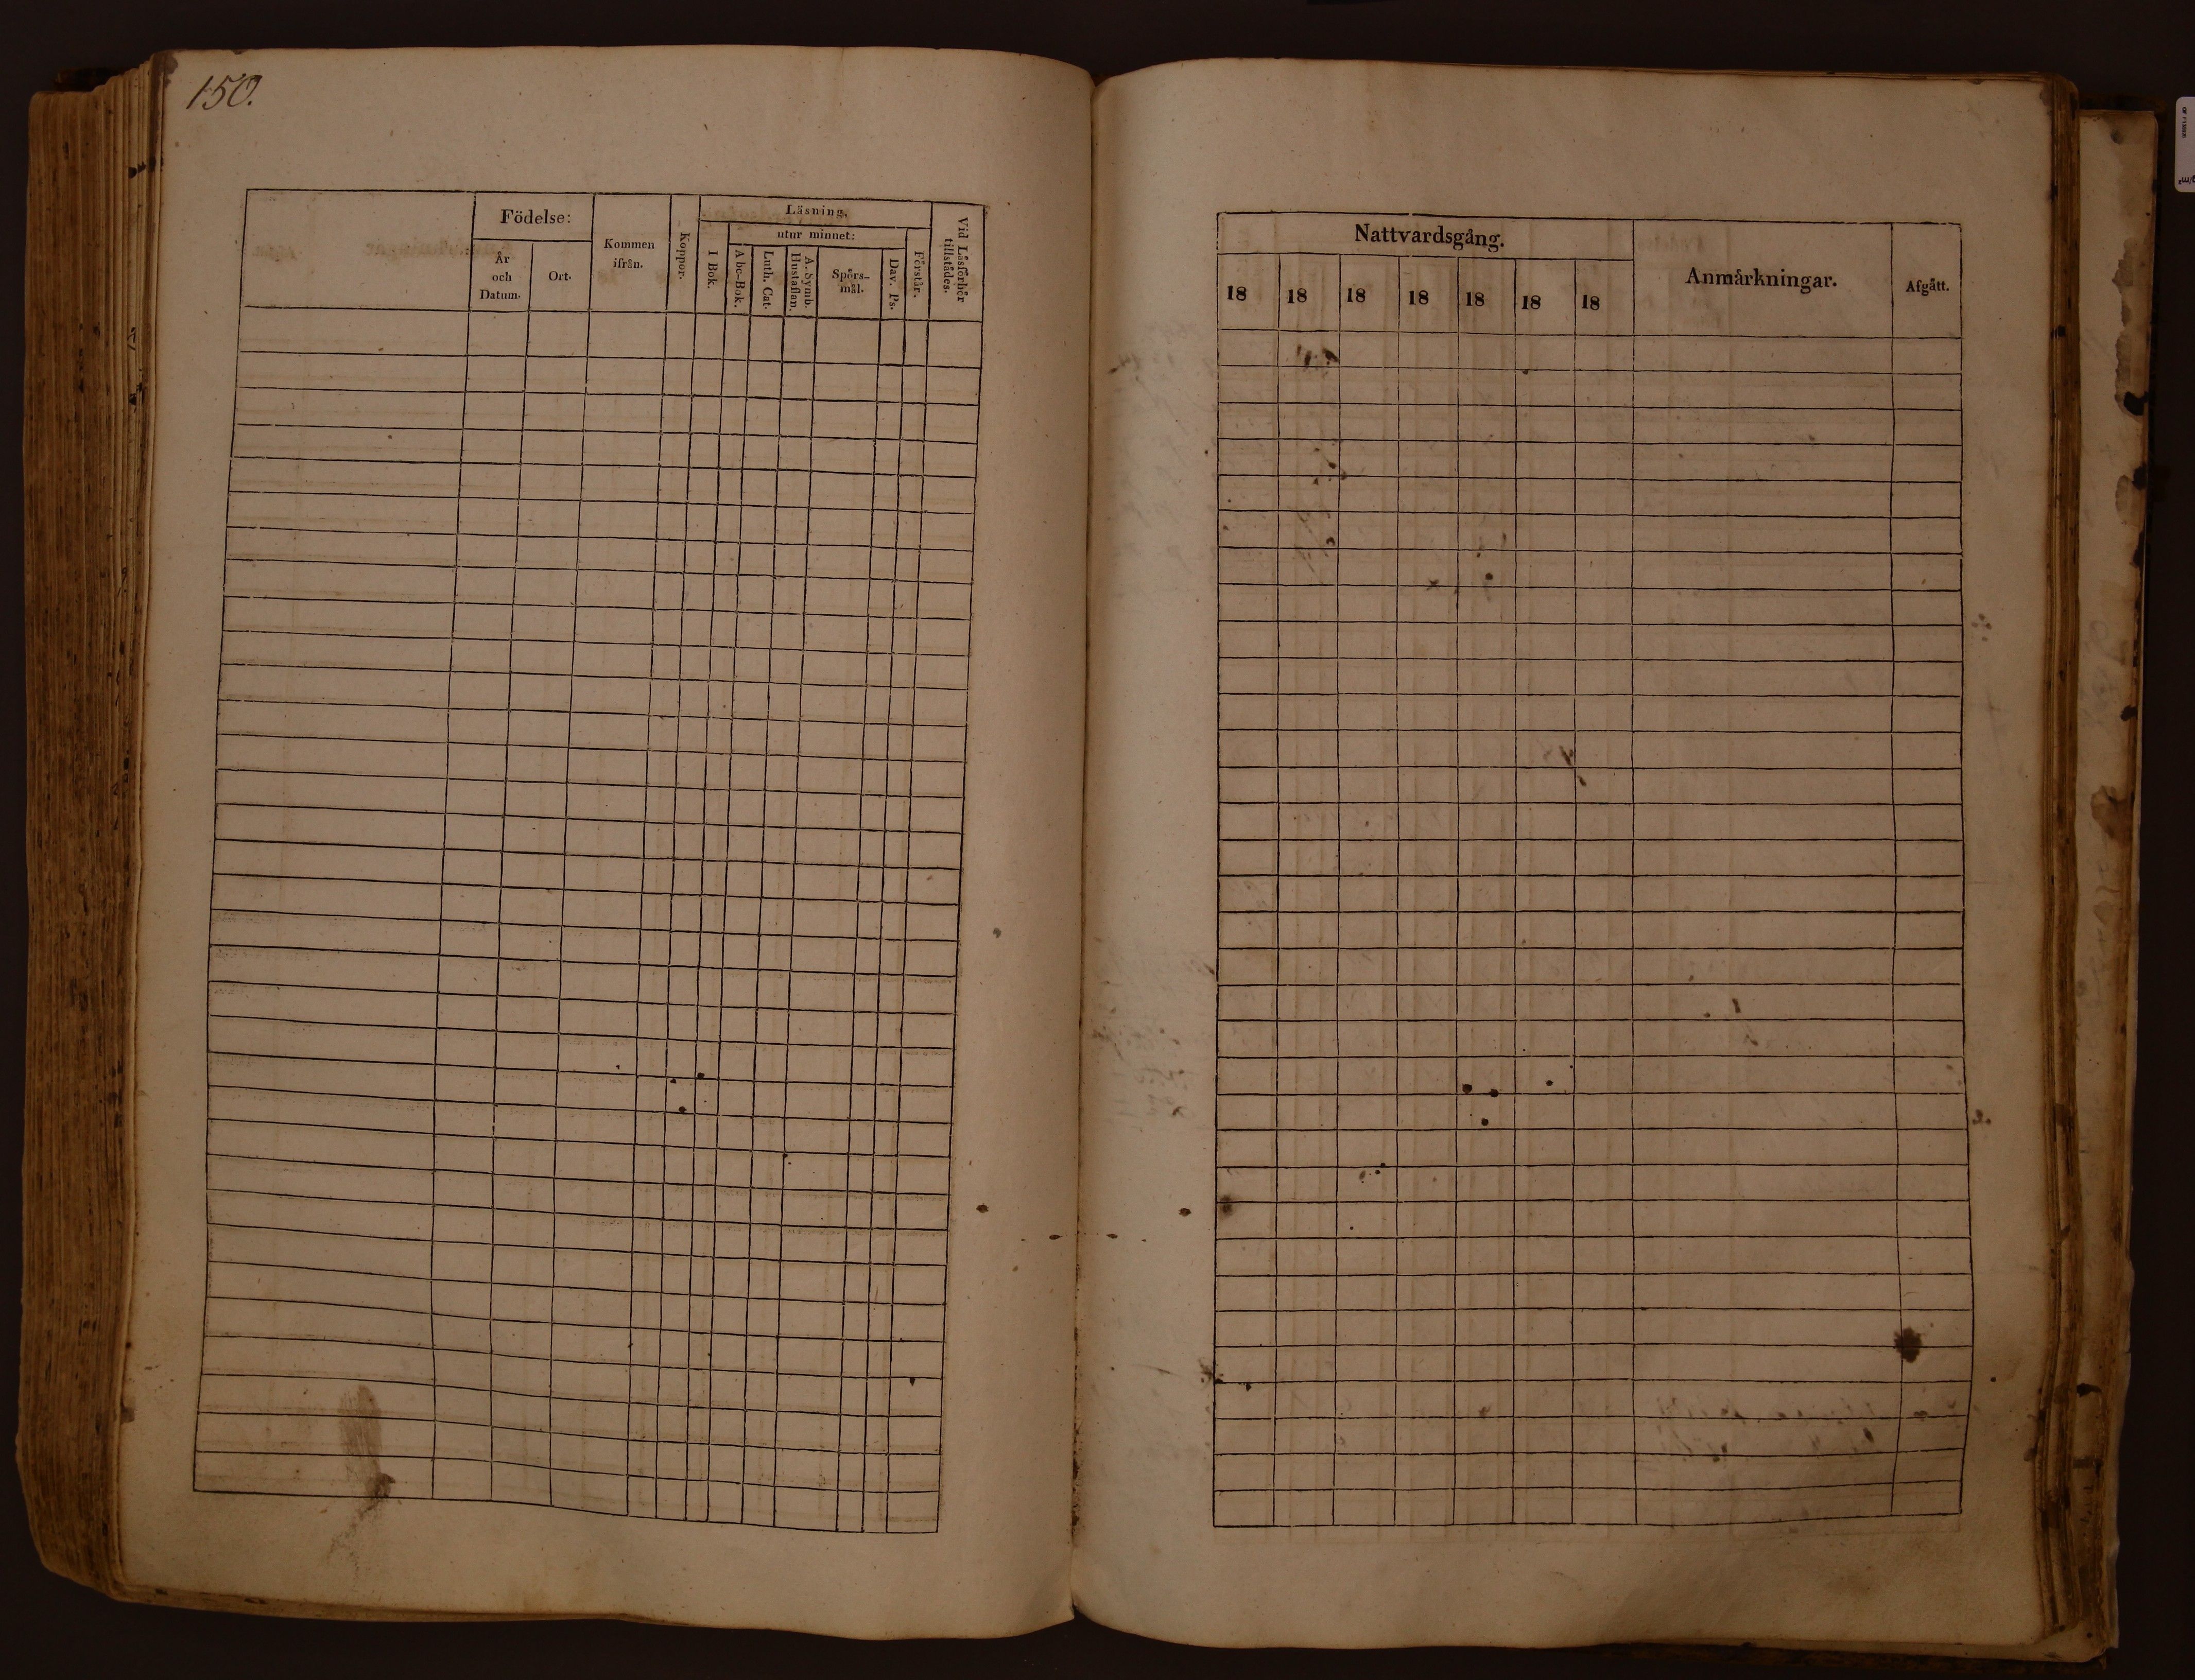 150.
Födelse:
År
och
Datum.
Ort.
Kommen
ifrån.
Koppor.
Läsning.
I Bok.
utur minnet:
Abc-Bok.
Luth. Cat.
A. Symb.
Hustaflan.
Spörs-
mål.
Dav. Ps.
Förstår.
Vid Läsförhör
tillstädes.
Nattvardsgång.
18 18 18 18 18 18 18
Anmärkningar.
Afgått.